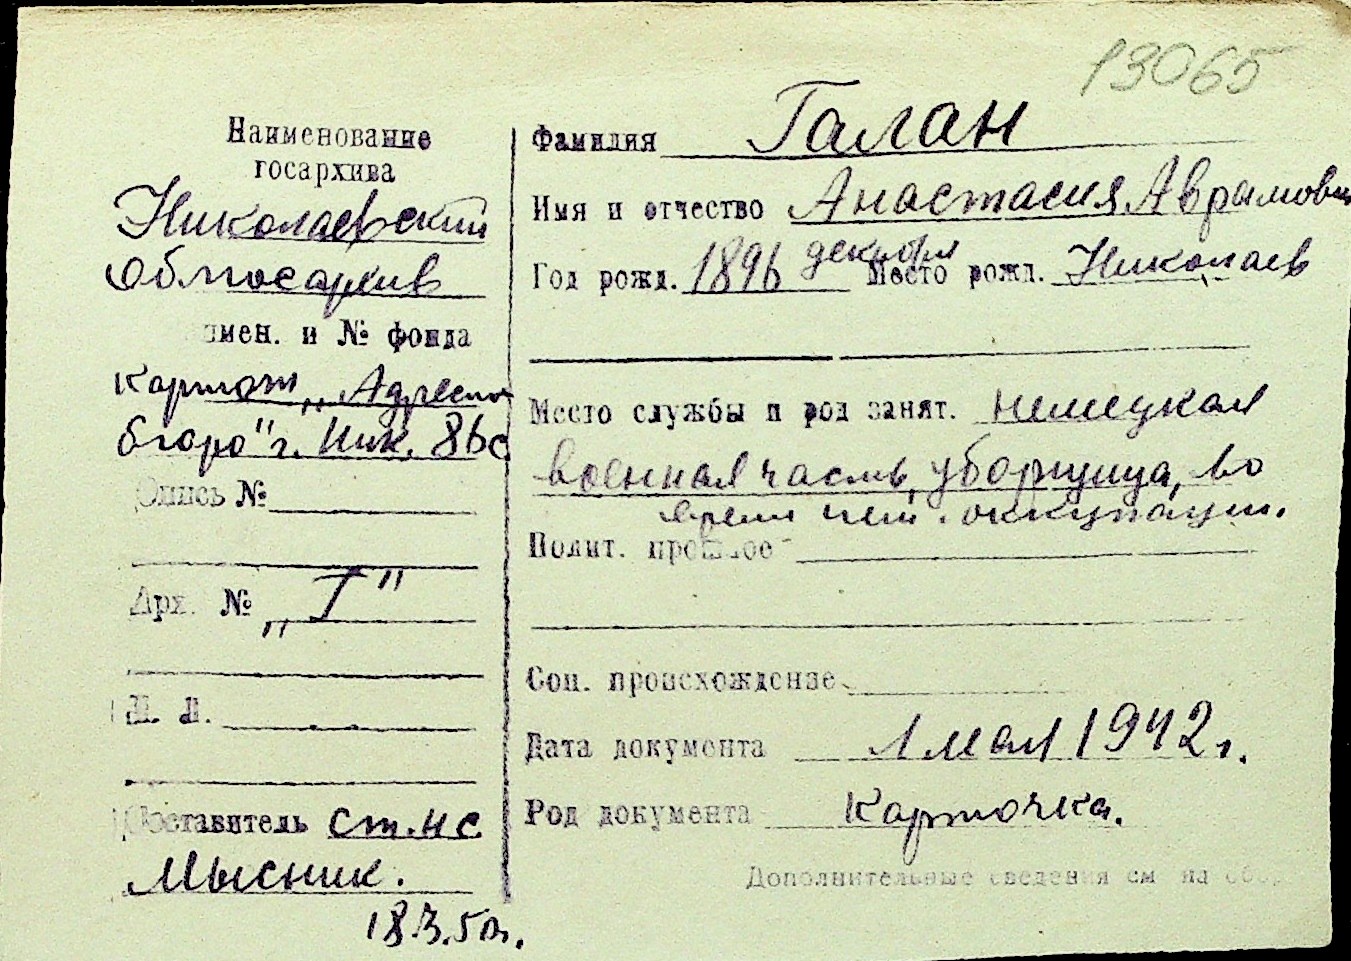 13065
Наименование
госархива
Николаевский
Облгосархив
имен. и № фонда
Картот „Адресно
бюро" г. Ник.
Опись №
Арх. № „Г"
Л. Л.
Составитель ст. нс
Мысник.
18.3.50г.
Фамилия Галан
Имя и отчество Анастасия Аврамовн
Год рожд. 1896 декабря Место рожд. Николаев
Место службы и род занят. немецкая
военная часть, уборщица, во
время нем. оккупации.
Полит. прошлое
Соц. происхождение
Дата документа 1 мая 1942 г.
Род документа Карточка.
Дополнительные сведения см на обор